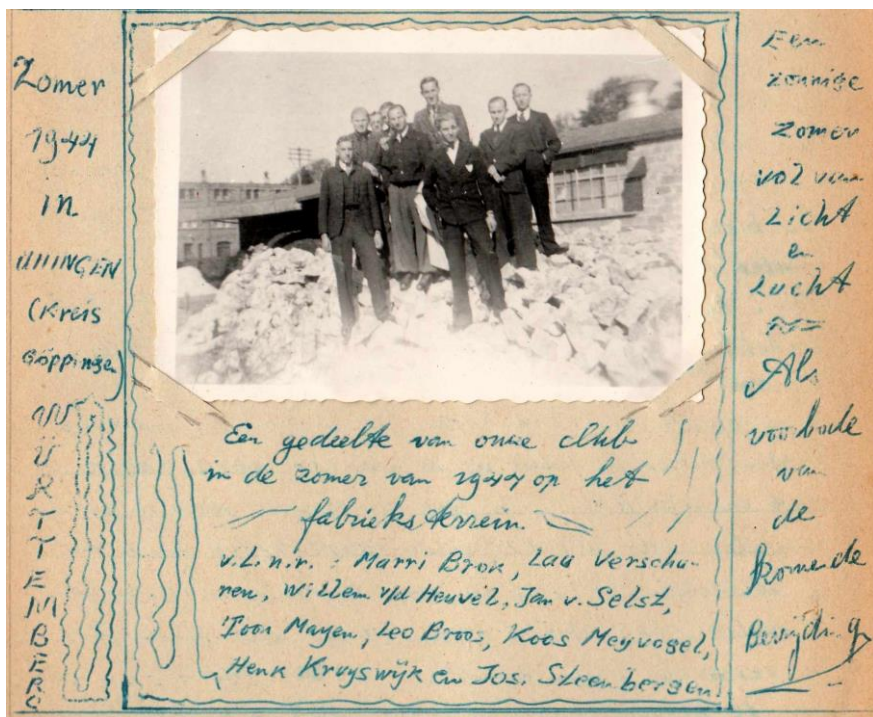 Zomer
1944
in
UHINGEN
(Kreis
Göppingen)
WÜRTTEMBERG
Een gedeelte van onze club
in de zomer van 1944 op het
fabrieksterrein.
v.l.n.r.: Marri Brok, Lau Verschu-
ren, Willem v/d Heuvel, Jan v. Selst,
Toon Mayen, Leo Broos, Koos Meyvogel,
Henk Kruyswijk en Jos. Steenbergen.
Een
zonnige
zomer
vol van
Licht
en
Lucht
Als
voorbode
van
de
komende
Bevrijding